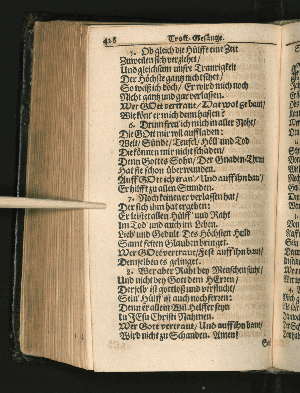 428 Trost-Gesänge.
5. Ob gleich die Hülffe eine Zeit
Zuweilen sich verziehet/
Und gleichsam unsre Traurigkeit
Der Höchste gantz nicht siehet/
So weiß ich doch/ Er wird mich noch
Nicht gantz und gar verlassen.
Wer GOtt vertraut/ Hat wol gebaut/
Wie kön't er mich dann hassen?
6. Drum freu' ich mich in aller Noht/
Die GOtt mir voll aufladen:
Welt/ Sünde/ Teufel/ Höll' und Tod
Die können mir nicht schaden/
Denn Gottes Sohn/ Der Gnaden-Thron
Hat sie schon überwunden.
Auff GOtt ich trau'/ Und auff ihn bau'/
Er hilfft zu allen Stunden.
7. Noch keiner verlassen hat/
Der sich ihm hat ergeben:
Er leistet allen Hülff' und Raht
Im Tod' und auch im Leben.
Lieb' und Gedult Des Höchsten Huld
Samt festen Glauben bringet.
Wer GOtt vertraut/ Fest auff ihn baut/
Demselben es gelinget.
8. Wer aber Raht bey Menschen sucht/
Und nicht bey Gott dem HErren/
Derselb' ist gottloß und verflucht/
Sein' Hülff' ist auch noch ferren:
Denn er allein Will Helffer seyn
In JEsu Christi Nahmen.
Wer Gott vertraut/ Und auff ihn baut/
Wird nicht zu Schanden. Amen!